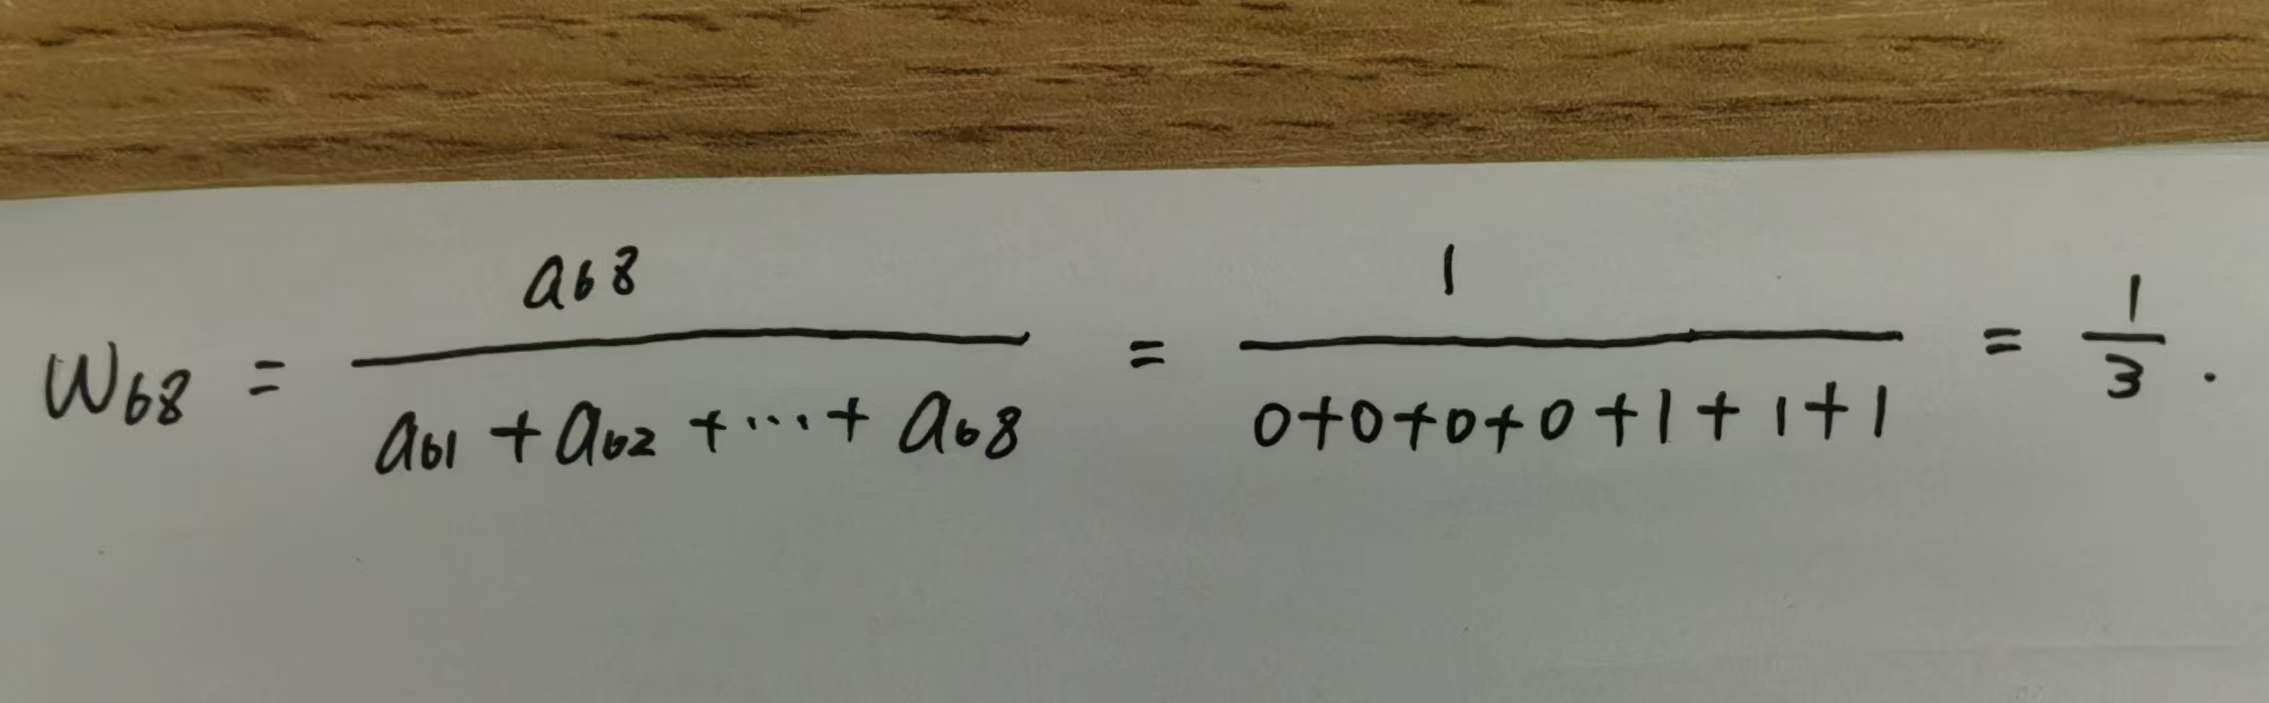 W₆₈ = a₆₈ / (a₆₁ + a₆₂ + ⋯ + a₆₈) = 1 / (0+0+0+0+1+1+1) = 1/3 .